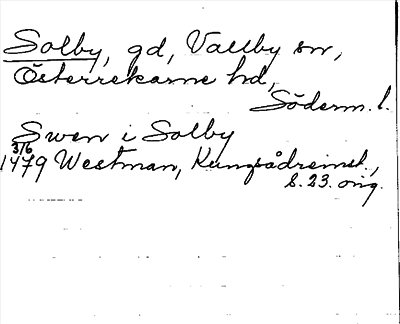 Solby, gd, Vallby sn,
Österrekarne hd,
Söderm. l.
Swen i Solby
3/6
1479 Westman, Kungsådreinst.,
s. 23. orig.